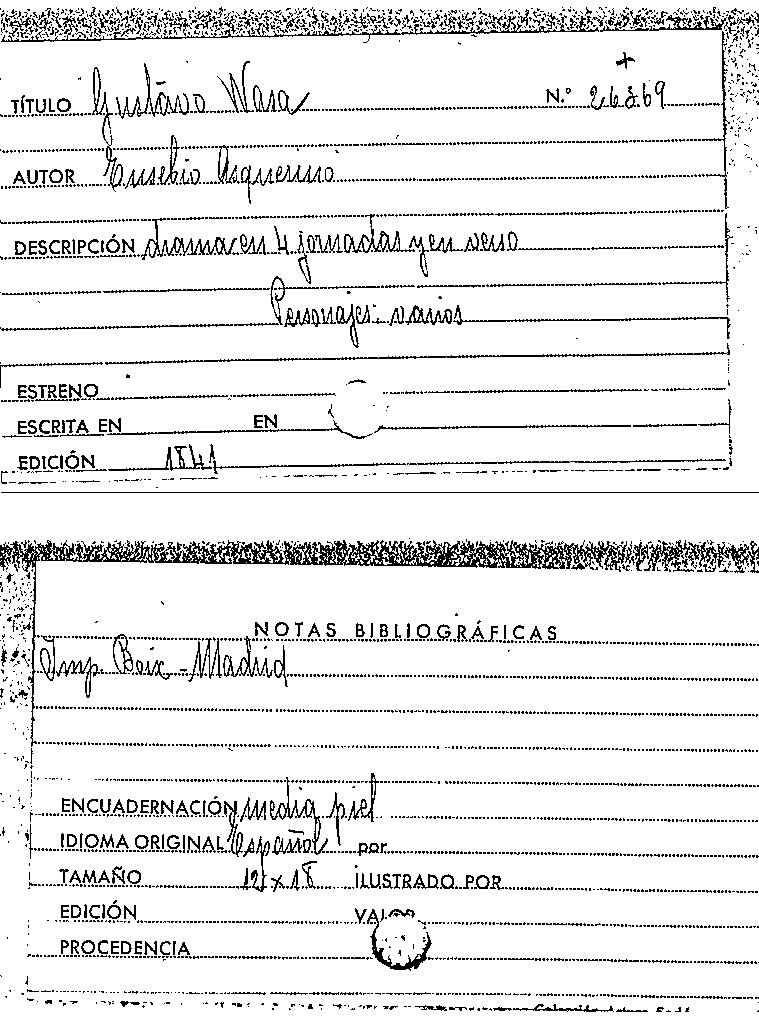 +
TÍTULO Gustavo Wasa N.º 26369
AUTOR Eusebio Asquerino
DESCRIPCIÓN drama en 4 jornadas y en verso
Personajes: varios
ESTRENO
ESCRITA EN EN
EDICIÓN 1841
NOTAS BIBLIOGRÁFICAS
Imp. Boix - Madrid
ENCUADERNACIÓN media piel
IDIOMA ORIGINAL Español por
TAMAÑO 12 x 18 ILUSTRADO POR
EDICIÓN VALOR
PROCEDENCIA